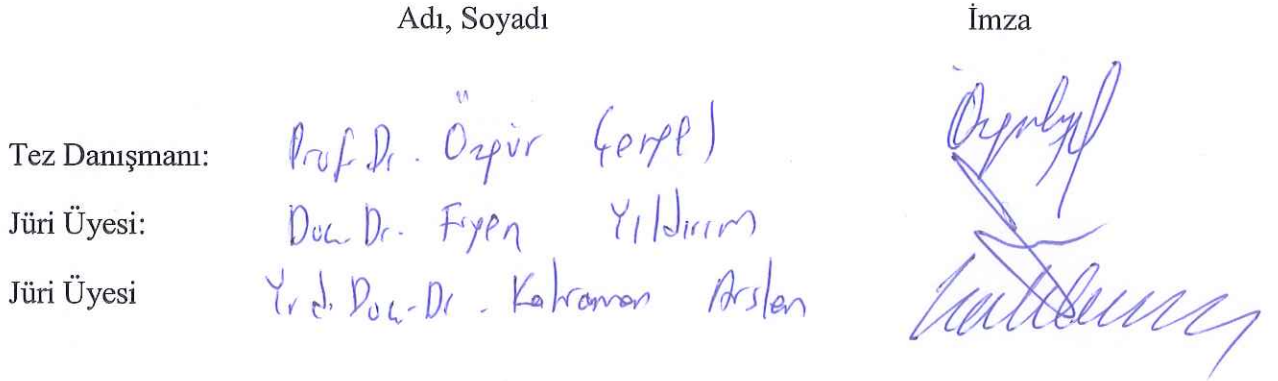 Adı, Soyadı İmza
Tez Danışmanı: Prof. Dr. Özgür Çengel
Jüri Üyesi: Doc. Dr. Yıldırım
Jüri Üyesi Yrd. Doc. Dr. Kahraman Arslan